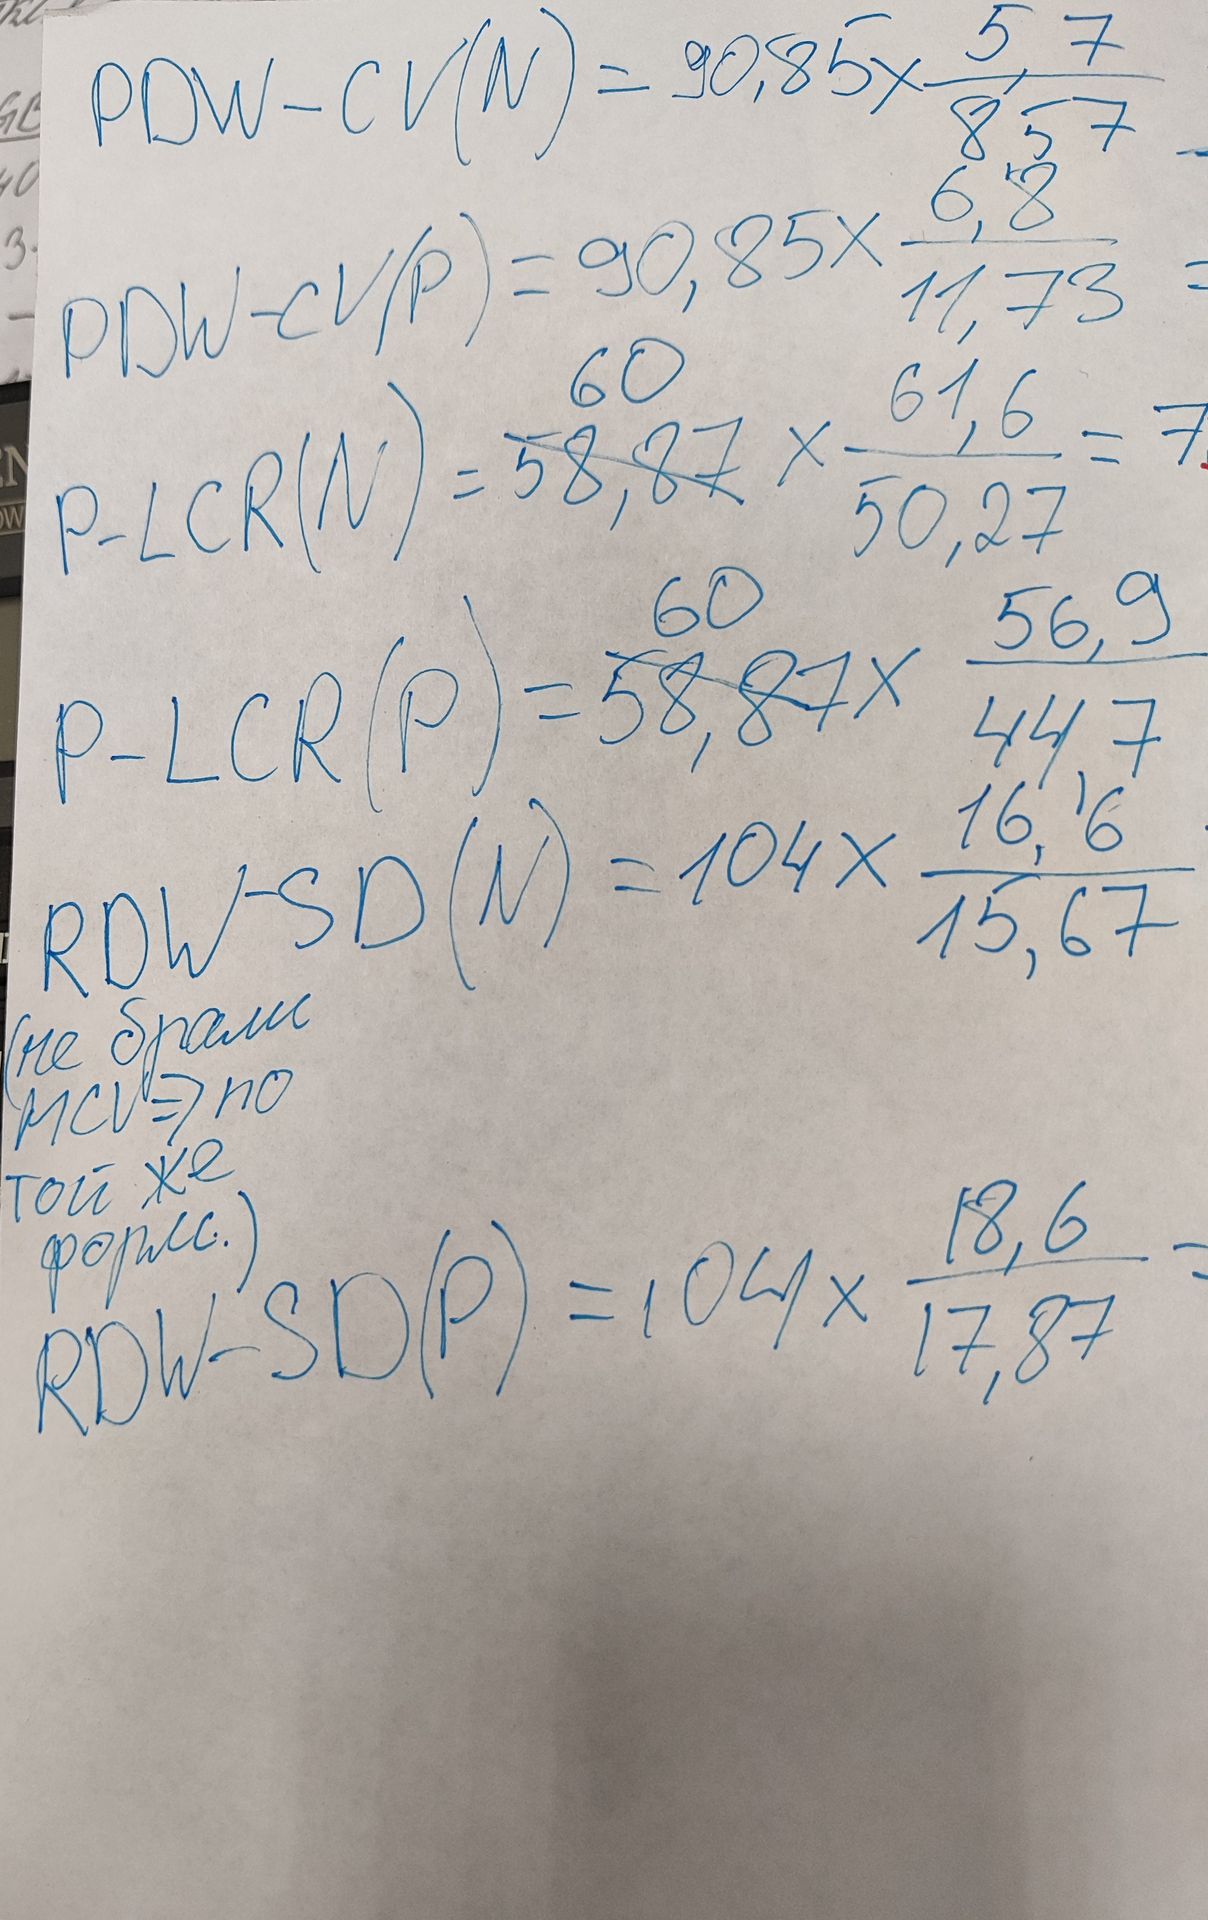 PDW-CV(N) = 90,85 × 5,7
8,57
PDW-CV(P) = 90,85 × 6,8
11,73 =
60
P-LCR(N) = 58,87 × 61,6 = 7
50,27
60
P-LCR(P) = 58,87 × 56,9
44,7
RDW-SD(N) = 104 × 16,6
15,67
(не брали
MCV => по
той же
форм.)
RDW-SD(P) = 104 × 18,6 =
17,87